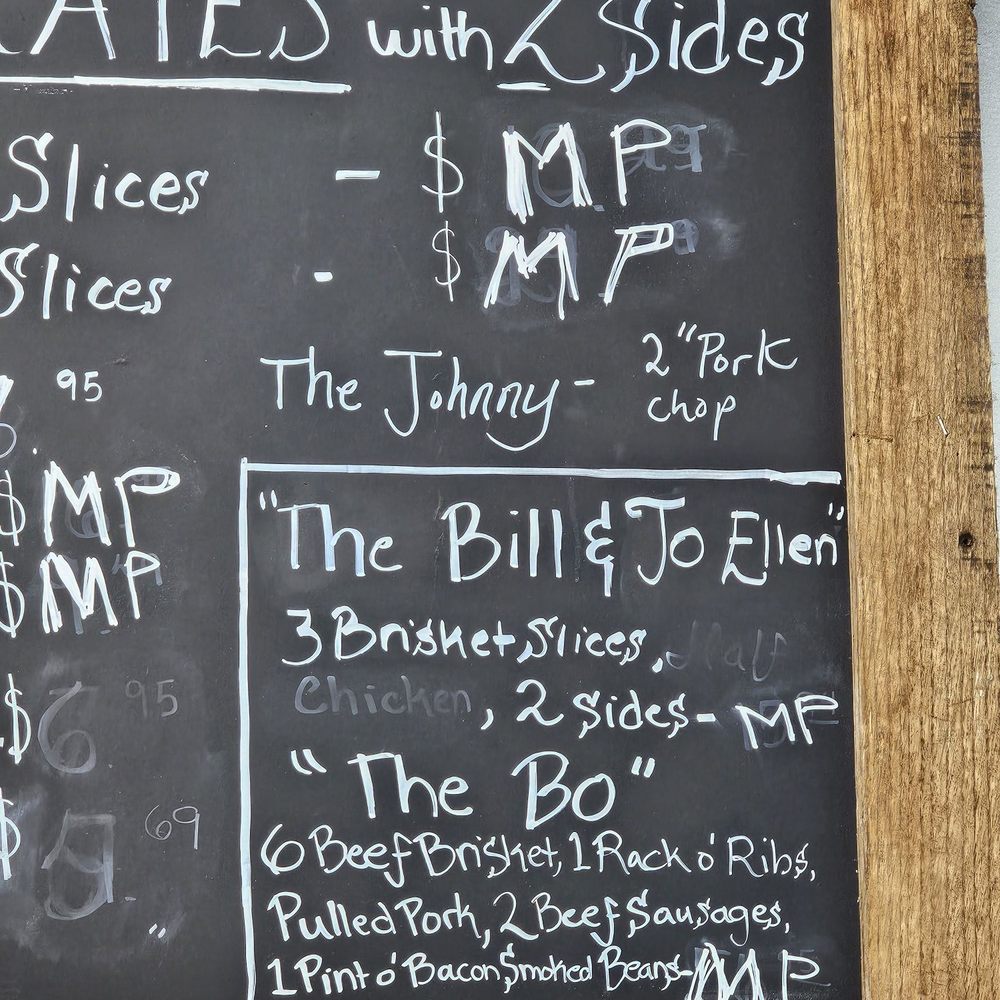 with 2 Sides
Slices - $ MP
Slices - $ MP
The Johnny - 2" Pork
chop
95
$ MP
$ MP
$ 95
$ 69
"The Bill & Jo Ellen"
3 Brisket Slices, Half
Chicken, 2 Sides - MP
"The Bo"
6 Beef Brisket, 1 Rack o' Ribs,
Pulled Pork, 2 Beef Sausages,
1 Pint o' Bacon Smoked Beans - MP